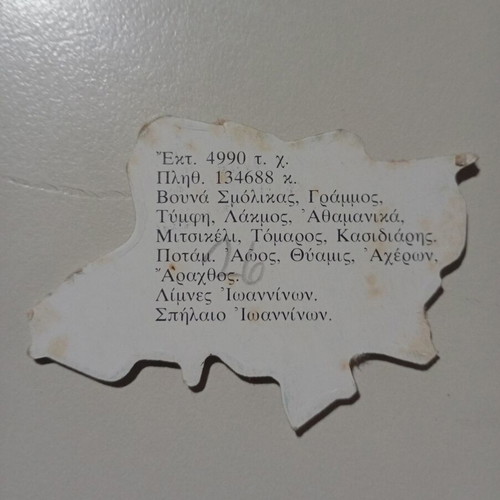 Ἔκτ. 4990 τ. χ.
Πληθ. 134688 κ.
Βουνά Σμόλικας, Γράμμος,
Τύμφη, Λάκμος, Ἀθαμανικά,
Μιτσικέλι, Τόμαρος, Κασιδιάρης.
Ποτάμ. Ἀῶος, Θύαμις, Ἀχέρων,
Ἄραχθος.
Λίμνες Ἰωαννίνων.
Σπήλαιο Ἰωαννίνων.
26